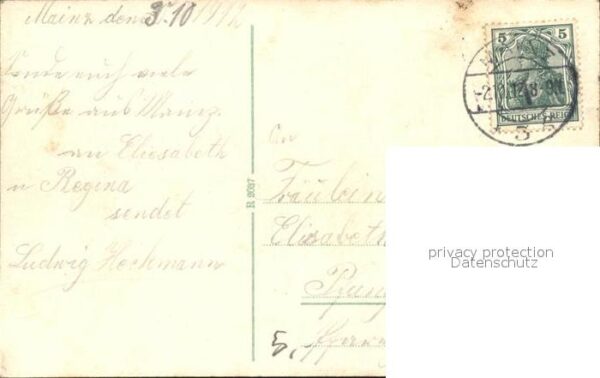 Mainz den 3.10 1912
Sende euch viele
Grüße aus Mainz.
an Eliesabeth
u Regina
sendet
Ludwig Heckmann
R 9057
An
Fräulein
Elisabeth
5
5
DEUTSCHES REICH
3
privacy protection
Datenschutz